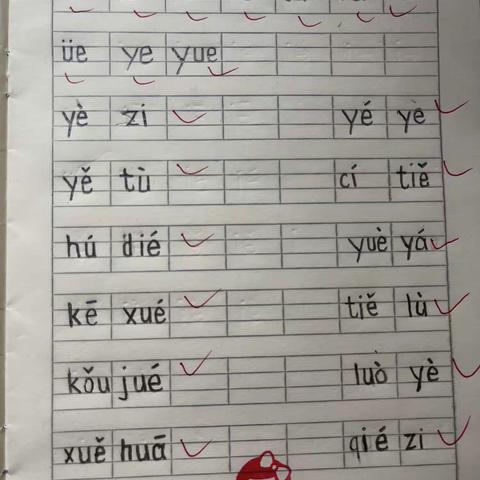 üe ye yue
yè zi yé yè
yě tù cí tiě
hú dié yuè yá
kē xué tiě lù
kǒu jué luò yè
xuě huā qié zi